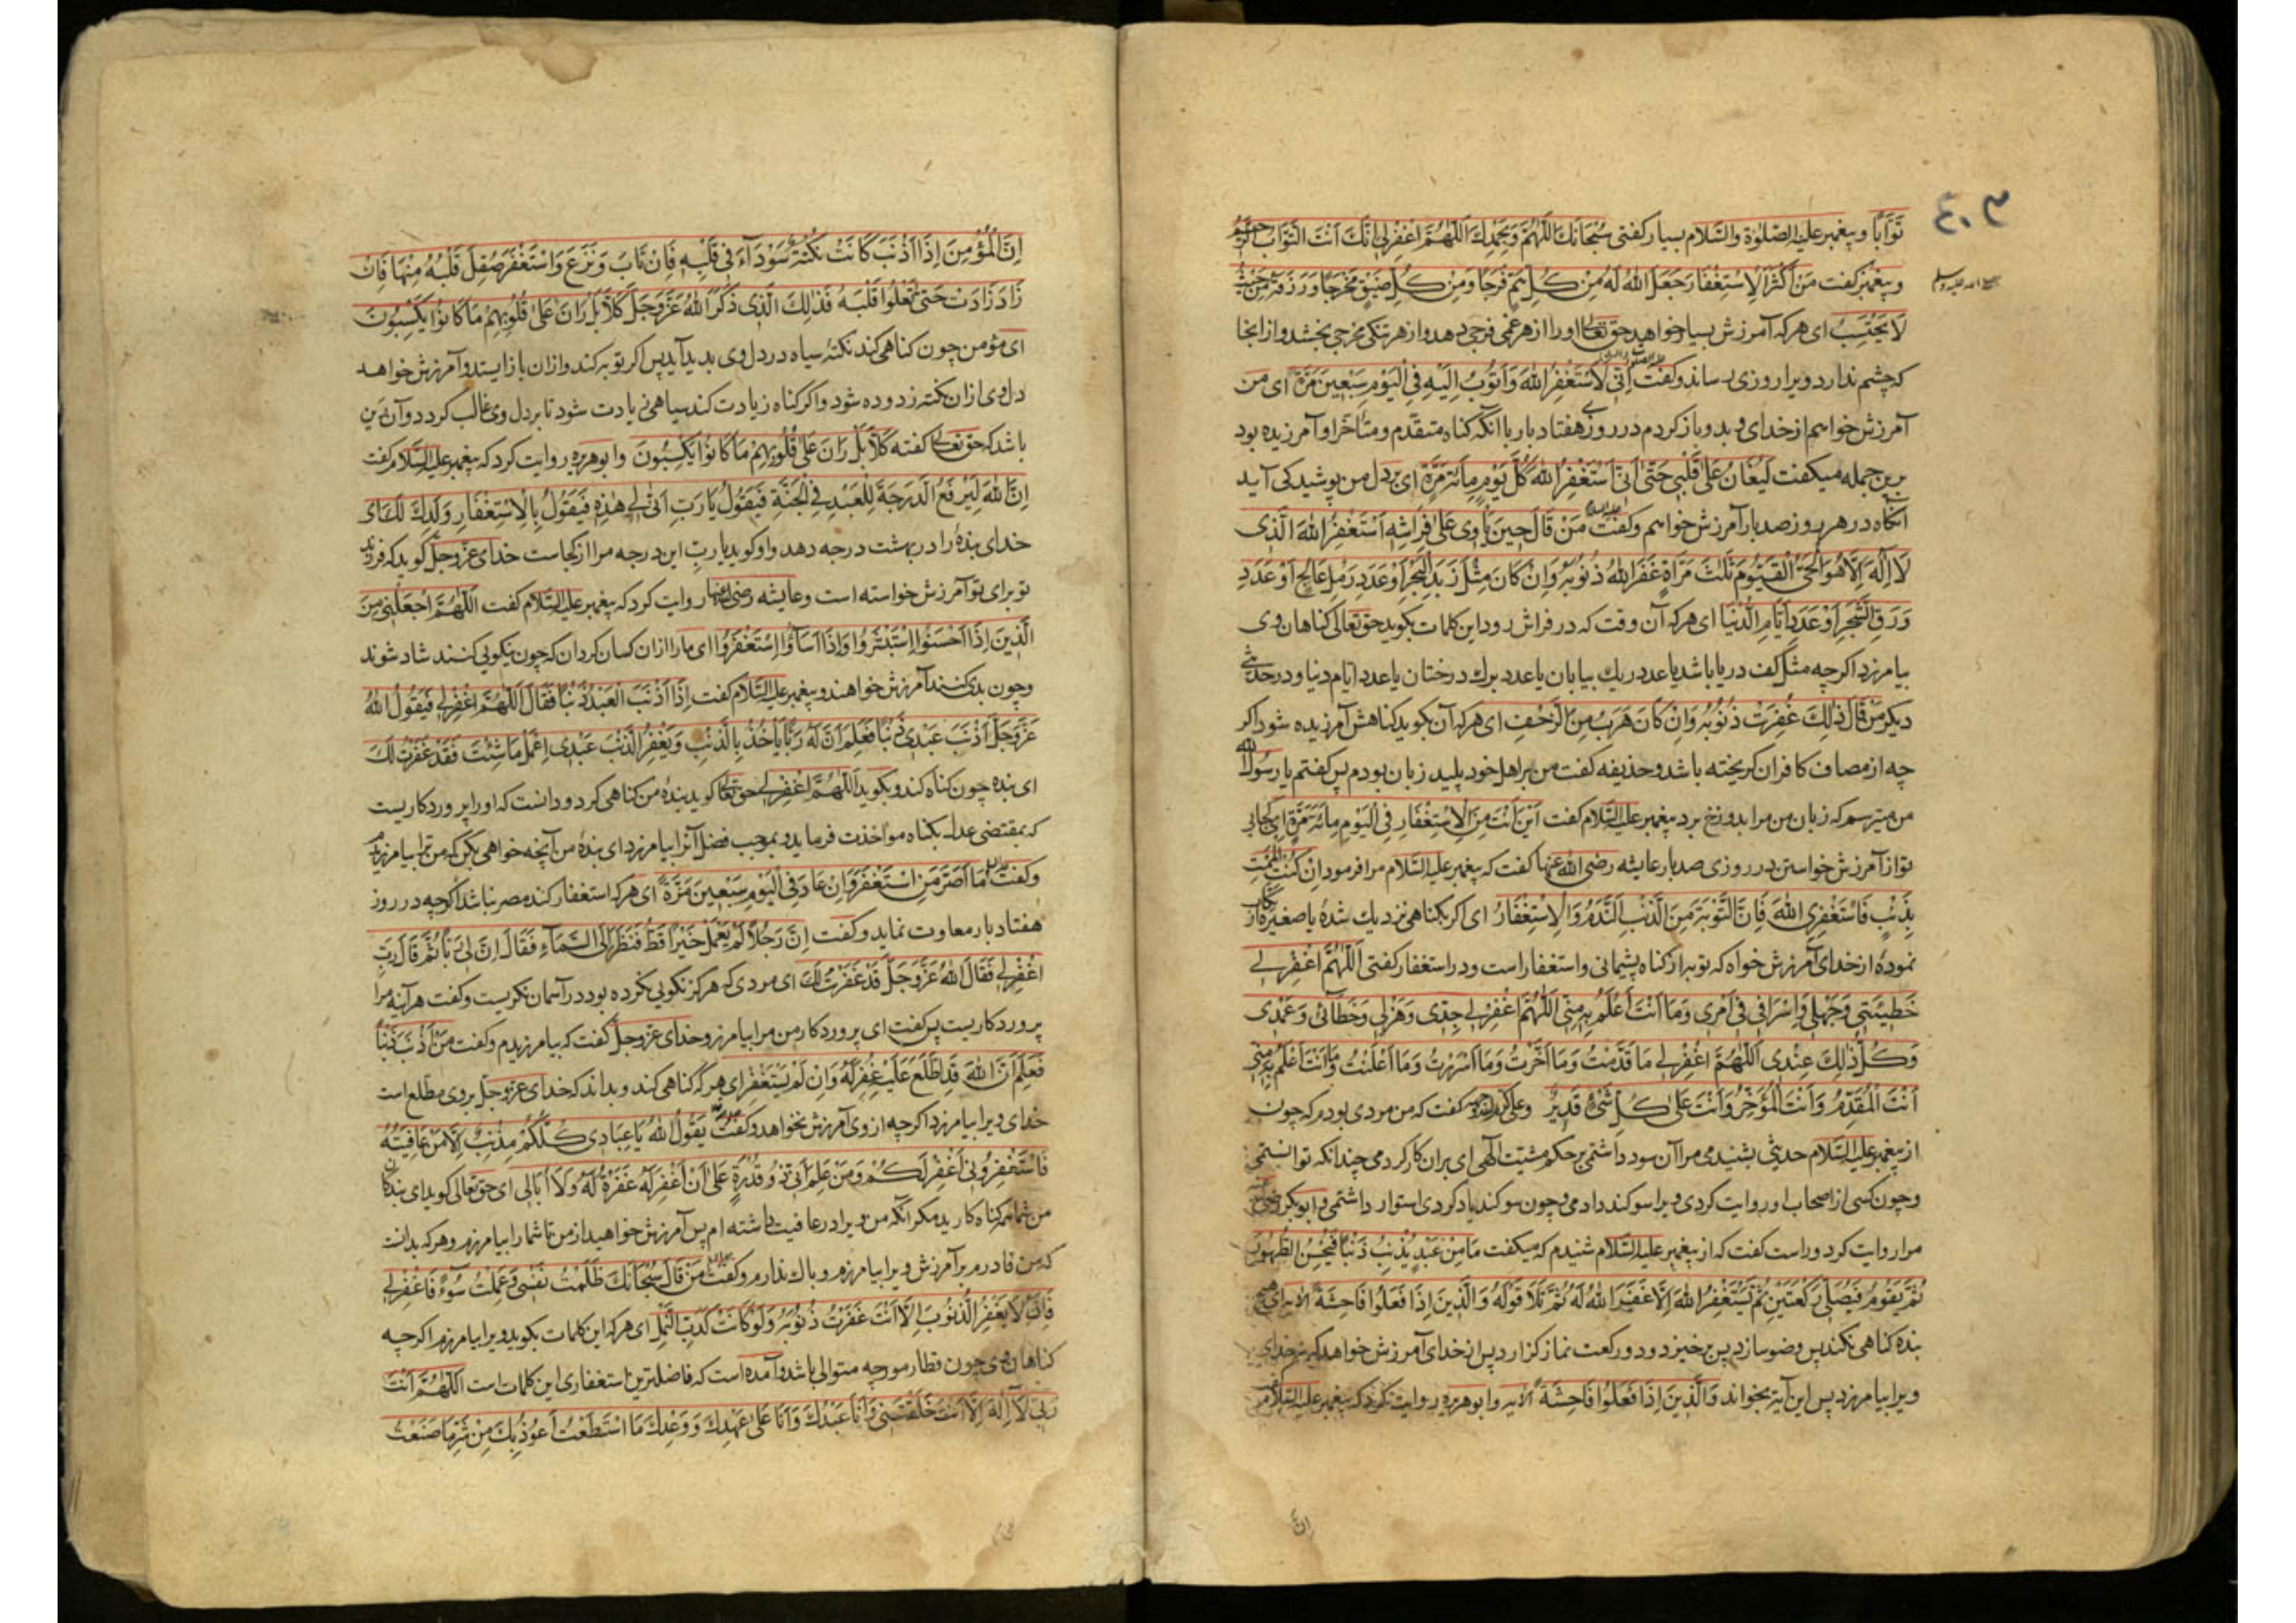 ٤٠٣
تَوَّابًا و پیغمبر علیه الصلوة والسّلام بسیار کفتی سُبْحَانَكَ اللّٰهُمَّ وَبِحَمْدِكَ اَللّٰهُمَّ اغْفِرْلِی اِنَّكَ اَنْتَ التَّوَّابُ الرَّحِیمُ
و پیغمبر کفت مَنْ اَكْثَرَ الْاِسْتِغْفَارَ جَعَلَ اللّٰهُ لَهُ مِنْ كُلِّ هَمٍّ فَرَجًا وَمِنْ كُلِّ ضِیْقٍ مَخْرَجًا وَرَزَقَهُ مِنْ حَیْثُ
لَا یَحْتَسِبُ ای هر که آمرزش بسیار خواهد حق تعالی اورا از هر غمی فرجی دهد و از هر تنکی مخرجی بخشد و از انجا
که چشم ندارد ویرا روزی رساند و کفت اِنِّی لَاَسْتَغْفِرُ اللّٰهَ وَاَتُوْبُ اِلَیْهِ فِی الْیَوْمِ سَبْعِیْنَ مَرَّةً ای من
آمرزش خواهم از خدای و بدو باز کردم در روزی هفتاد بار با آنکه کناه متقدم و متأخر او آمرزیده بود
برین جمله میکفت لَیُغَانُ عَلٰی قَلْبِی حَتّٰی اَنِّی اَسْتَغْفِرُ اللّٰهَ كُلَّ یَوْمٍ مِائَةَ مَرَّةٍ ای بر دل من پوشیدکی آید
انکاه در هر روز صد بار آمرزش خواهم و کفت مَنْ قَالَ حِیْنَ یَأْوِی عَلٰی فِرَاشِهِ اَسْتَغْفِرُ اللّٰهَ الَّذِی
لَا اِلٰهَ اِلَّا هُوَ الْحَیُّ الْقَیُّوْمُ ثَلٰثَ مَرَّاةٍ غَفَرَ اللّٰهُ ذُنُوْبَهُ وَاِنْ كَانَ مِثْلَ زَبَدِ الْبَحْرِ اَوْ عَدَدِ رَمْلِ عَالِجٍ اَوْ عَدَدِ
وَرَقِ الشَّجَرِ اَوْ عَدَدِ اَیَّامِ الدُّنْیَا ای هر که آن وقت که در فراش رود این کلمات بکوید حق تعالی کناهان وی
بیامرزد اکرچه مثل کف دریا باشد یا عدد ریك بیابان یا عدد برك درختان یا عدد ایام دنیا و در حدیثی
دیکر مَنْ قَالَ ذٰلِكَ غُفِرَتْ ذُنُوْبُهُ وَاِنْ كَانَ هَرَبَ مِنَ الزَّحْفِ ای هر که آن بکوید کناهش آمرزیده شود اکر
چه از مصاف کافران کریخته باشد و حذیفه کفت من بر اهل خود پلید زبان بودم پس کفتم یا رسول الله
من میترسم که زبان من مرا بدوزخ برد پیغمبر علیه السّلام کفت اَیْنَ اَنْتَ مِنَ الْاِسْتِغْفَارِ فِی الْیَوْمِ مِائَةَ مَرَّةٍ ای کجایی
تو از آمرزش خواستن در روزی صد بار عایشه رضی الله عنها کفت که پیغمبر علیه السّلام مرا فرمود اِنْ كُنْتِ اَلْمَمْتِ
بِذَنْبٍ فَاسْتَغْفِرِی اللّٰهَ فَاِنَّ التَّوْبَةَ مِنَ الذَّنْبِ النَّدَمُ وَالْاِسْتِغْفَارُ ای اکر بکناهی نزدیك شدهٔ یا صغیره
نمودهٔ از خدای آمرزش خواه که توبه از کناه پشیمانی و استغفار است و در استغفار کفتی اَللّٰهُمَّ اغْفِرْلِی
خَطِیْئَتِی وَجَهْلِی وَاِسْرَافِی فِی اَمْرِی وَمَا اَنْتَ اَعْلَمُ بِهِ مِنِّی اَللّٰهُمَّ اغْفِرْلِی جِدِّی وَهَزْلِی وَخَطَائِی وَعَمْدِی
وَكُلُّ ذٰلِكَ عِنْدِی اَللّٰهُمَّ اغْفِرْلِی مَا قَدَّمْتُ وَمَا اَخَّرْتُ وَمَا اَسْرَرْتُ وَمَا اَعْلَنْتُ وَمَا اَنْتَ اَعْلَمُ بِهِ مِنِّی
اَنْتَ الْمُقَدِّمُ وَاَنْتَ الْمُؤَخِّرُ وَاَنْتَ عَلٰی كُلِّ شَیْءٍ قَدِیْرٌ وعلی کرم الله وجهه کفت که من مردی بودم که چون
از پیغمبر علیه السّلام حدیثی بشنیدمی مرا آن سود داشتمی بر حکم مشیت الهی ای بران کار کردمی چندانکه توانستمی
و چون کسی از اصحاب او روایت کردی ویرا سوکند دادمی و چون سوکند یاد کردی استوار داشتمی و ابوبکر رضی الله عنه
مرا روایت کرد و راست کفت که از پیغمبر علیه السّلام شنیدم که میکفت مَا مِنْ عَبْدٍ یُذْنِبُ ذَنْبًا فَیُحْسِنُ الطُّهُوْرَ
ثُمَّ یَقُوْمُ فَیُصَلِّی رَكْعَتَیْنِ ثُمَّ یَسْتَغْفِرُ اللّٰهَ اِلَّا غَفَرَ اللّٰهُ لَهُ ثُمَّ تَلَا قَوْلَهُ وَالَّذِیْنَ اِذَا فَعَلُوْا فَاحِشَةً الآیه ای هیچ
بنده کناهی نکند پس وضو سازد پس برخیزد و دو رکعت نماز کزارد پس از خدای آمرزش خواهد که نه خدای
ویرا بیامرزد پس این آیه بخواند وَالَّذِیْنَ اِذَا فَعَلُوْا فَاحِشَةً الآیه و ابوهریره روایت کرد که پیغمبر علیه السّلام کفت
انّ
اِنَّ الْمُؤْمِنَ اِذَا اَذْنَبَ كَانَتْ نُكْتَةٌ سَوْدَآءُ فِی قَلْبِهِ فَاِنْ تَابَ وَنَزَعَ وَاسْتَغْفَرَ صُقِلَ قَلْبُهُ مِنْهَا فَاِنْ
زَادَ زَادَتْ حَتّٰی تَعْلُوْا قَلْبَهُ فَذٰلِكَ الَّذِی ذَكَرَ اللّٰهُ عَزَّ وَجَلَّ كَلَّا بَلْ رَانَ عَلٰی قُلُوْبِهِمْ مَا كَانُوْا یَكْسِبُوْنَ
ای مؤمن چون کناهی کند نکتهٔ سیاه در دل وی بدید آید پس اکر توبه کند و ازان باز ایستد و آمرزش خواهد
دل وی ازان نکته زدوده شود و اکر کناه زیادت کند سیاهی زیادت شود تا بر دل وی غالب کردد و آن رین
باشد که حق تعالی کفته كَلَّا بَلْ رَانَ عَلٰی قُلُوْبِهِمْ مَا كَانُوْا یَكْسِبُوْنَ و ابوهریره روایت کرد که پیغمبر علیه السّلام کفت
اِنَّ اللّٰهَ لَیَرْفَعُ الدَّرَجَةَ لِلْعَبْدِ فِی الْجَنَّةِ فَیَقُوْلُ یَا رَبِّ اَنّٰی لِی هٰذِهِ فَیَقُوْلُ بِالْاِسْتِغْفَارِ وَلَدِكَ لَكَ ای
خدای بنده را در بهشت درجه دهد و او کوید یا ربّ این درجه مرا از کجاست خدای عزّ وجلّ کوید که فرزند
تو برای تو آمرزش خواسته است و عایشه رضی الله عنها روایت کرد که پیغمبر علیه السّلام کفت اَللّٰهُمَّ اجْعَلْنِی مِنَ
الَّذِیْنَ اِذَا اَحْسَنُوْا اِسْتَبْشَرُوْا وَاِذَا اَسَاؤُا اِسْتَغْفَرُوْا ای مارا ازان کسان کردان که چون نیکویی کنند شاد شوند
و چون بدی کنند آمرزش خواهند و پیغمبر علیه السّلام کفت اِذَا اَذْنَبَ الْعَبْدُ ذَنْبًا فَقَالَ اَللّٰهُمَّ اغْفِرْلِی فَیَقُوْلُ اللّٰهُ
عَزَّ وَجَلَّ اَذْنَبَ عَبْدِی ذَنْبًا فَعَلِمَ اَنَّ لَهُ رَبًّا یَأْخُذُ بِالذَّنْبِ وَیَغْفِرُ الذَّنْبَ عَبْدِی اِعْمَلْ مَا شِئْتَ فَقَدْ غَفَرْتُ لَكَ
ای بنده چون کناه کند و بکوید اَللّٰهُمَّ اغْفِرْلِی حق تعالی کوید بندهٔ من کناهی کرد و دانست که اورا پروردکاریست
که بمقتضی عدل بکناه مواخذت فرماید و بموجب فضل آنرا بیامرزد ای بندهٔ من آنچه خواهی بکن که من ترا بیامرزیدم
و کفت مَا اَصَرَّ مَنِ اسْتَغْفَرَ وَاِنْ عَادَ فِی الْیَوْمِ سَبْعِیْنَ مَرَّةً ای هر که استغفار کند مصر نباشد اکرچه در روز
هفتاد بار معاوت نماید و کفت اِنَّ رَجُلًا لَمْ یَعْمَلْ خَیْرًا قَطُّ فَنَظَرَ اِلَی السَّمَآءِ فَقَالَ اِنَّ لِی رَبًّا ثُمَّ قَالَ رَبِّ
اغْفِرْلِی فَقَالَ اللّٰهُ عَزَّ وَجَلَّ قَدْ غَفَرْتُ لَكَ ای مردی که هرکز نکویی نکرده بود در آسمان نکریست و کفت هرآینه مرا
پروردکاریست پس کفت ای پروردکار من مرا بیامرز و خدای عزّ وجلّ کفت که بیامرزیدم و کفت مَنْ اَذْنَبَ ذَنْبًا
فَعَلِمَ اَنَّ اللّٰهَ قَدِ اطَّلَعَ عَلَیْهِ غُفِرَ لَهُ وَاِنْ لَمْ یَسْتَغْفِرْ ای هر که کناهی کند و بداند که خدای عزّ وجلّ بر وی مطلع است
خدای ویرا بیامرزد اکرچه از وی آمرزش نخواهد و کفت یَقُوْلُ اللّٰهُ یَا عِبَادِی كُلُّكُمْ مُذْنِبٌ اِلَّا مَنْ عَافَیْتُهُ
فَاسْتَغْفِرُوْنِی اَغْفِرْ لَكُمْ وَمَنْ عَلِمَ اَنِّی ذُوْ قُدْرَةٍ عَلٰی اَنْ اَغْفِرَ لَهُ غَفَرْتُ لَهُ وَلَا اُبَالِی ای حق تعالی کوید ای بندکان
من شما همه کناه کارید مکر آنکه من ویرا در عافیت داشته ام پس آمرزش خواهید از من تا شما را بیامرزم و هر که بدانست
که من قادرم بر آمرزش ویرا بیامرزم و باك ندارم و کفت مَنْ قَالَ سُبْحَانَكَ ظَلَمْتُ نَفْسِی وَعَمِلْتُ سُوْءً فَاغْفِرْلِی
فَاِنَّهُ لَا یَغْفِرُ الذُّنُوْبَ اِلَّا اَنْتَ غَفَرْتُ ذُنُوْبَهُ وَلَوْ كَانَتْ كَدَبِّ النَّمْلِ ای هر که این کلمات بکوید ویرا بیامرزم اکرچه
کناهان وی چون قطار مورچه متوالی باشد و آمده است که فاضلترین استغفاری این کلمات است اَللّٰهُمَّ اَنْتَ
رَبِّی لَا اِلٰهَ اِلَّا اَنْتَ خَلَقْتَنِی وَاَنَا عَبْدُكَ وَاَنَا عَلٰی عَهْدِكَ وَوَعْدِكَ مَا اسْتَطَعْتُ اَعُوْذُ بِكَ مِنْ شَرِّ مَا صَنَعْتُ